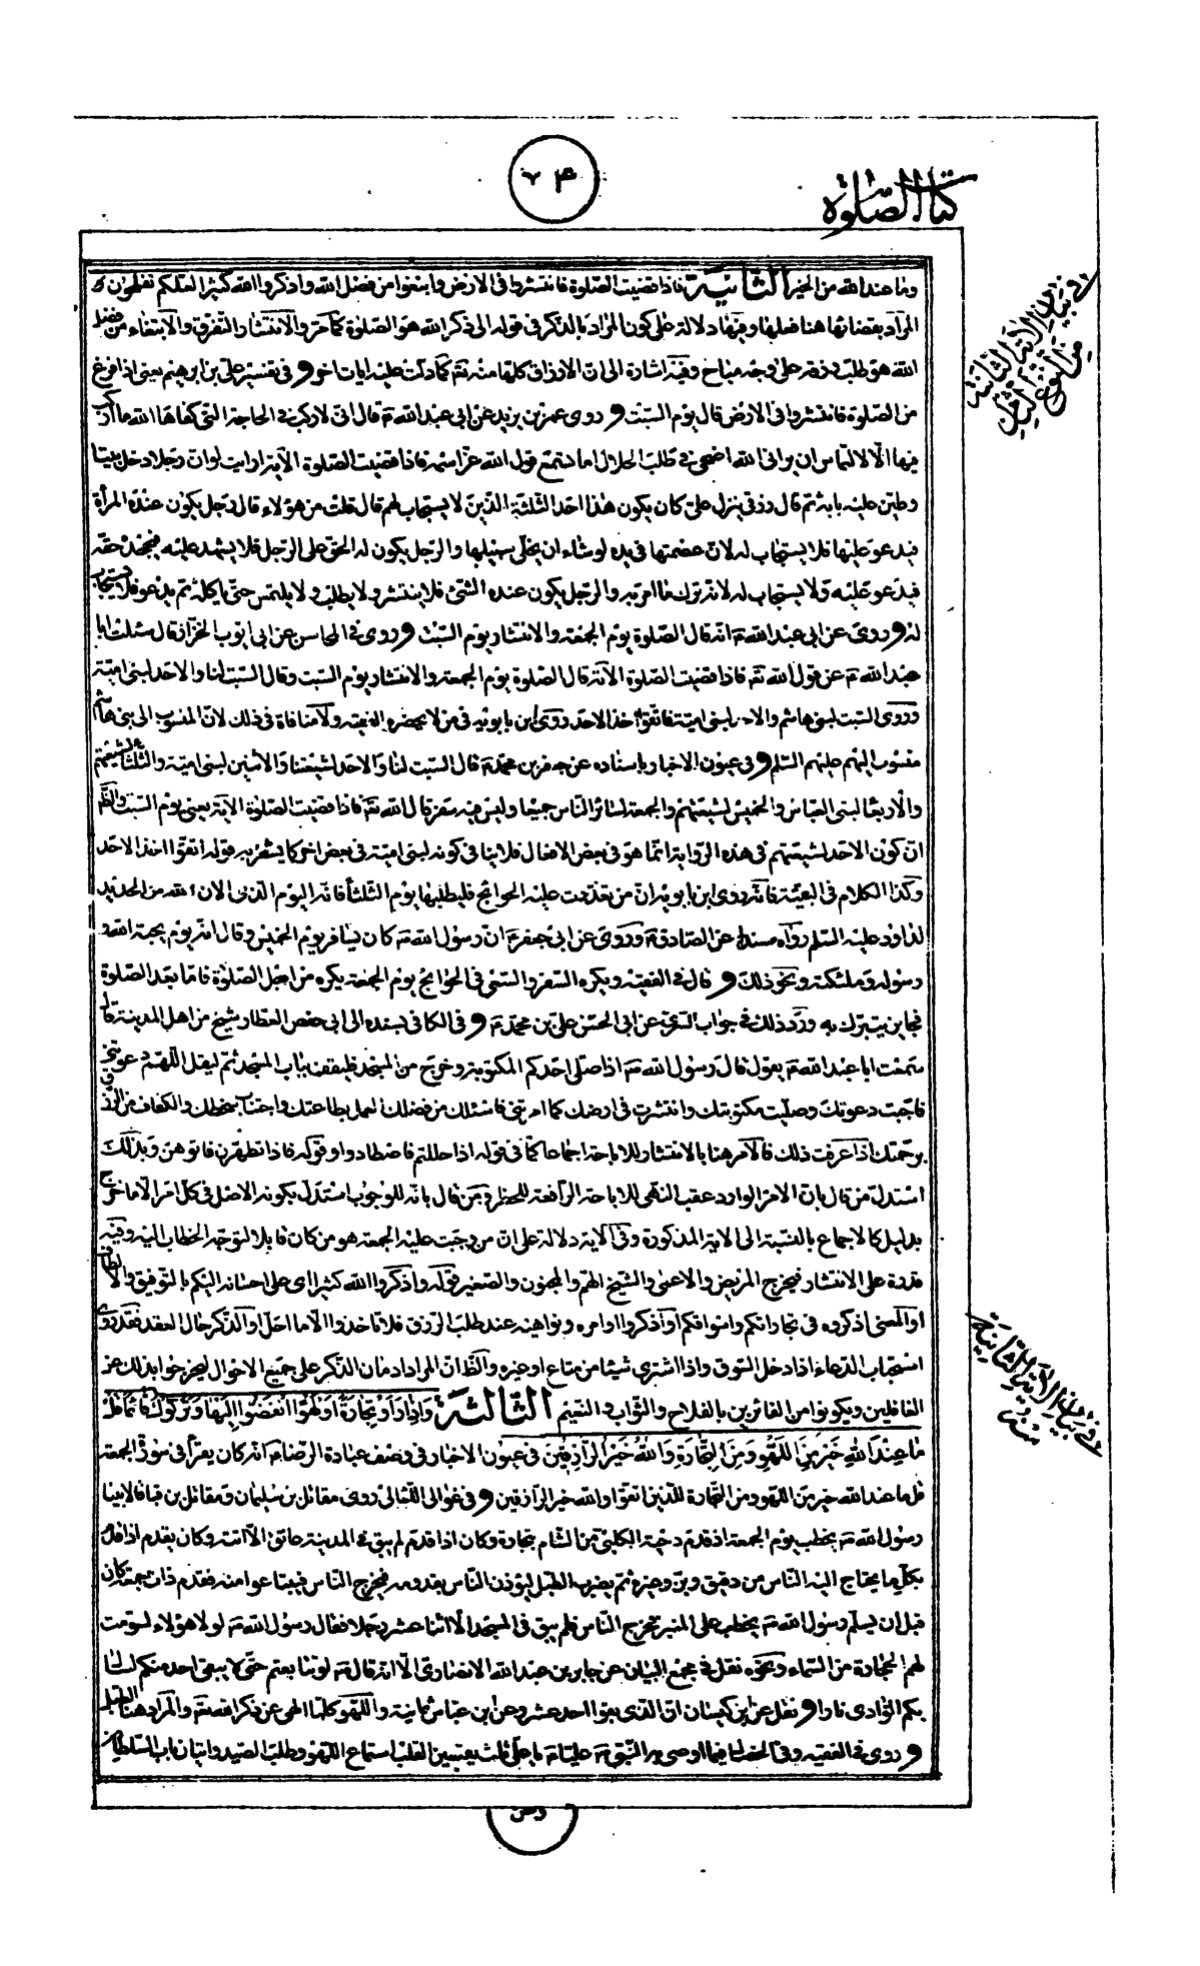 ٧٤
كتاب الصلوة
وما عند الله من الخير الثانية فاذا قضيت الصلوة فانتشروا فى الارض وابتغوا من فضل الله واذكروا الله كثيرا لعلكم تفلحون
المراد بقضائها هنا فعلها وفيها دلالة على كون المراد بالذكر فى قوله الى ذكر الله هو الصلوة كما مر والانتشار التفرق والابتغاء من فضل
الله هو طلب رزقه على وجه مباح وفيه اشارة الى ان الارزاق كلها منه تع كما دلت عليه ايات اخر و فى تفسير على بن ابرهيم يعنى اذا فرغ
من الصلوة فانتشروا فى الارض قال يوم السبت و روى عمر بن يزيد عن ابى عبد الله ع قال انى لاركب فى الحاجة التى كفاها الله ما اركب
فيها الا لالتماس ان يرانى الله اضحى فى طلب الحلال اما تستمع قول الله عز اسمه فاذا قضيت الصلوة الاية ارايت لو ان رجلا دخل بيتا
وطين عليه بابه ثم قال رزقى ينزل على كان يكون هذا احد الثلثة الذين لا يستجاب لهم قال قلت من هؤلاء قال رجل يكون عنده المرأة
فيدعو عليها فلا يستجاب له لان عصمتها فى يده لو شاء ان يخلى سبيلها والرجل يكون له الحق على الرجل فلا يشهد عليه فيجحده حقه
فيدعو عليه ولا يستجاب له لانه ترك ما امر به والرجل يكون عنده الشئ فلا ينتشر ولا يطلب ولا يلتمس حتى ياكله ثم يدعو فلا يستجاب
له و روى عن ابى عبد الله ع انه قال الصلوة يوم الجمعة والانتشار يوم السبت و روى فى المحاسن عن ابى ايوب الخزاز قال سئلت ابا
عبد الله ع عن قول الله تع فاذا قضيت الصلوة الاية قال الصلوة يوم الجمعة والانتشار يوم السبت وقال السبت لنا والاحد لبنى امية
وروى السبت لبنى هاشم والاحد لبنى امية فاتقوا اخذ الاحد روى ابن بابويه فى من لا يحضره الفقيه ولا منافاة فى ذلك لان المنسوب الى بنى هاشم
منسوب اليهم عليهم السلم و فى عيون الاخبار باسناده عن جعفر بن محمد ع قال السبت لنا والاحد لشيعتنا والاثنين لبنى امية والثلثا لشيعتهم
والاربعا لبنى العباس والخميس لشيعتهم والجمعة لسائر الناس جميعا وليس فيه سفر قال الله تع فاذا قضيت الصلوة الاية يعنى يوم السبت والظ
ان كون الاحد لشيعتهم فى هذه الرواية انما هو فى بعض الافعال فلا ينافى كونه لبنى امية فى بعض اخر كما يشعر به قوله اتقوا اخذ الاحد
وكذا الكلام فى البقية فانه روى ابن بابويه ان من تعذرت عليه الحوائج فليطلبها يوم الثلثا فانه اليوم الذى الان الله فيه الحديد
لداود عليه السلم رواه مسندا عن الصادق ع وروى عن ابى جعفر ع ان رسول الله ص كان يسافر يوم الخميس وقال انه يوم يحبه الله و
رسوله وملئكته ونحو ذلك و قال فى الفقيه ويكره السفر والسعى فى الحوائج يوم الجمعة يكره من اجل الصلوة فاما بعد الصلوة
فجايز يتبرك به ورد ذلك فى جواب السرى عن ابى الحسن على بن محمد ع و فى الكافى بسنده الى ابى حفص العطار شيخ من اهل المدينة قال
سمعت ابا عبد الله ع يقول قال رسول الله ص اذا صلى احدكم المكتوبة وخرج من المسجد فليقف بباب المسجد ثم ليقل اللهم دعوتنى
فاجبت دعوتك وصليت مكتوبتك وانتشرت فى ارضك كما امرتنى فاسئلك من فضلك العمل بطاعتك واجتناب سخطك والكفاف من الرزق
برحمتك اذا عرفت ذلك فالامر هنا بالانتشار للاباحة اجماعا كما فى قوله اذا حللتم فاصطادوا وقوله فاذا تطهرن فاتوهن وبذلك
استدل من قال بان الامر الوارد عقيب النهى للاباحة الرافعة للحظر ومن قال بانه للوجوب استدل بكونه الاصل فى كل امر الا ما خرج
بدليل كالاجماع بالنسبة الى الاية المذكورة وفى الاية دلالة على ان من وجبت عليه الجمعة هو من كان قابلا لتوجه الخطاب اليه وفيه
قدرة على الانتشار فيخرج المريض والاعمى والشيخ الهم والمجنون والصغير قوله واذكروا الله كثيرا اى على احسانه اليكم بالتوفيق والالطاف
او المعنى اذكروه فى تجاراتكم واسواقكم او اذكروا اوامره ونواهيه عند طلب الرزق فلا تاخذوا الا ما احل او الذكر حال العقد فقد روى
استحباب الدعاء اذا دخل السوق واذا اشترى شيئا من متاع او غيره والظ ان المراد ادمان الذكر على جميع الاحوال ليخرجوا بذلك عن
الغافلين ويكونوا من الفائزين بالفلاح والثواب والنعيم الثالثة واذا راوا تجارة او لهوا انفضوا اليها وتركوك قائما قل
ما عند الله خير من اللهو ومن التجارة والله خير الرازقين فى عيون الاخبار فى وصف عبادة الرضا ع انه كان يقرأ فى سورة الجمعة
قل ما عند الله خير من اللهو ومن التجارة للذين اتقوا والله خير الرازقين و فى غوالى اللئالى روى مقاتل بن سليمان ومقاتل بن قيا قالا بينا
رسول الله ص يخطب يوم الجمعة اذ قدم دحية الكلبى من الشام بتجارة وكان اذا قدم لم يبق فى المدينة عاتق الا اتته وكان يقدم اذا قدم
بكل ما يحتاج اليه الناس من دقيق وبر وغيره ثم يضرب الطبل ليؤذن الناس بقدومه فيخرج الناس فيبتاعوا منه فقدم ذات جمعة وكان
قبل ان يسلم ورسول الله ص يخطب على المنبر فخرج الناس فلم يبق فى المسجد الا اثنا عشر رجلا فقال رسول الله ص لولا هؤلاء لسومت
لهم الحجارة من السماء ونحوه نقل فى مجمع البيان عن جابر بن عبد الله الانصارى الا انه قال ص لو تتابعتم حتى لا يبقى احد منكم لسال
بكم الوادى نارا و نقل عن ابن كيسان ان الذى بقوا احد عشر وعن ابن عباس ثمانية واللهو كلما الهى عن ذكر الله تع والمراد هنا الطبل
و روى فى الفقيه وفى الخصال فيما اوصى به النبى ص عليا ع يا على ثلث يقسين القلب استماع اللهو وطلب الصيد واتيان باب السلطان
فى بيان الاية الثانية
من النوع
فى بيان الاية الثانية
منه